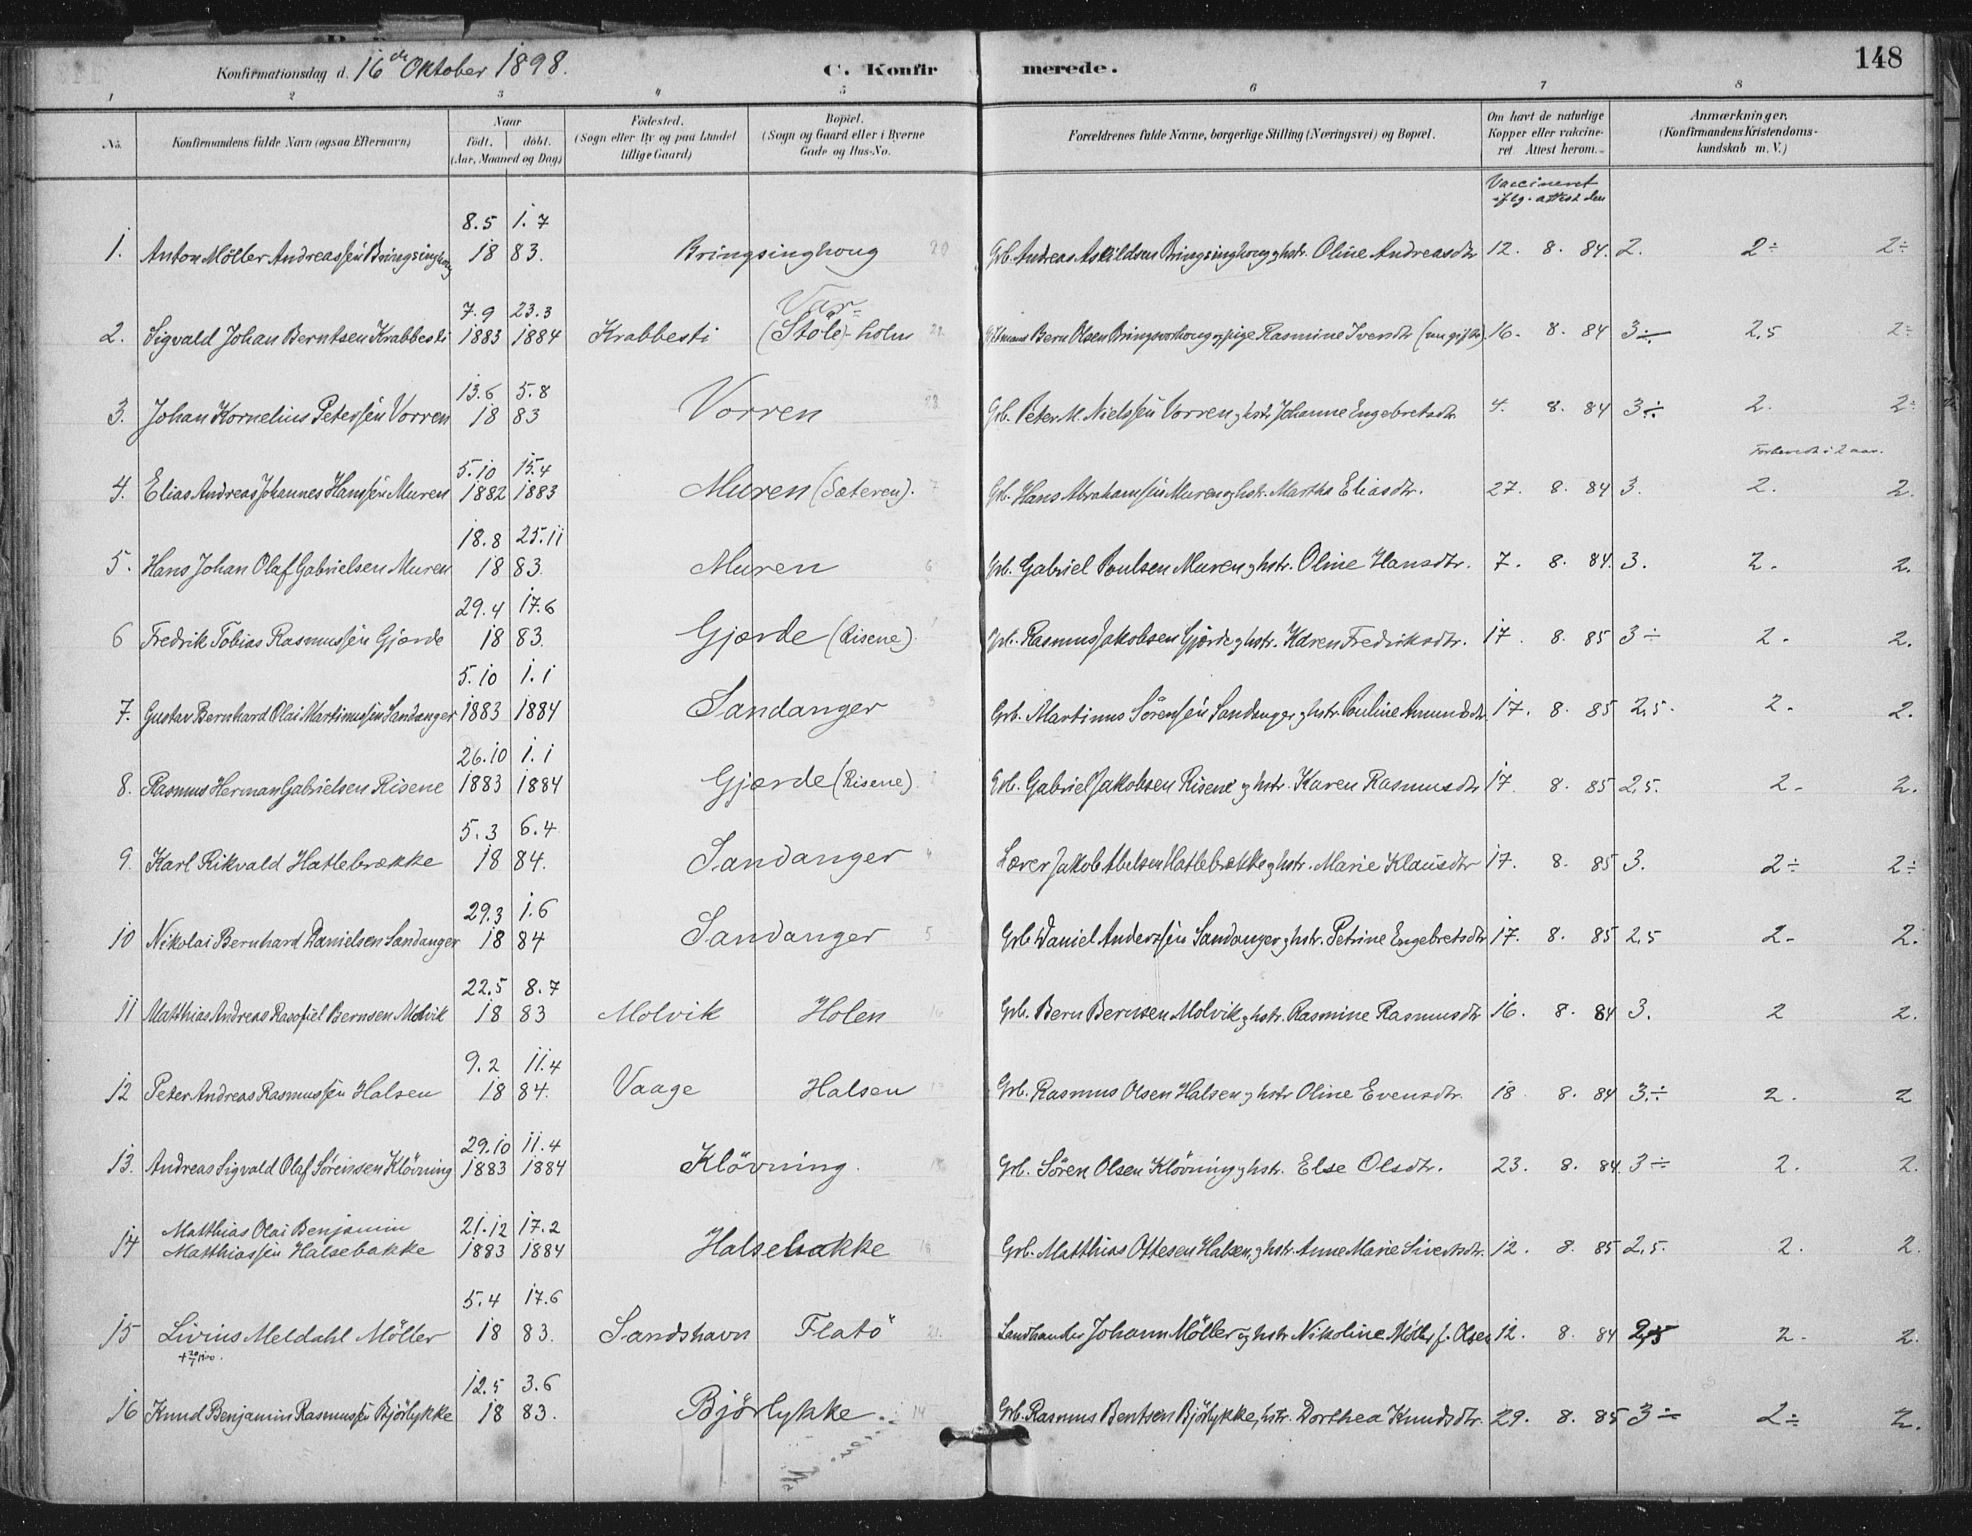 148
Konfirmationsdag d. 16de Oktober 1898. C. Konfirmerede.
1 2 3 4 5 6 7 8
No. Konfirmandens fulde Navn (ogsaa Efternavn) Naar født, døbt. (Aar, Maaned og Dag) Fødested. (Sogn eller By og paa Landet tillige Gaard) Bopæl. (Sogn og Gaard eller i Byerne Gade og Hus-No. Forældrenes fulde Navne, borgerlige Stilling (Næringsvei) og Bopæl. Om havt de naturlige Kopper eller vakcineret. Attest herom. Anmærkninger. (Konfirmandens Kristendomskundskab m. V.)
Vaccineret iflg. attest den
8.5 1.7
1. Anton Möller Andreassen Bringsinghoug 18 83. Bringsinghoug 20 Grb. Andreas Askildsen Bringsinghoug og hstr. Oline Andreasdtr 12. 8. 84. 2. 2÷ 2÷
7.9 23.3 Var-
2. Sigvald Johan Berntsen Krabbesti 1883 1884 Krabbesti (Støle)-holm Bern Olsen pige Rasmine Iversdtr 16. 8. 84 3÷ 2,5 2÷
13.6 5.8
3. Johan Kornelius Petersen Vorren 18 83 Vorren Grb. Peter M. Nielsen Vorren og hstr. Johanne Engebretsdtr. 4. 8. 84 3÷ 2. 2÷
5.10 15.4 i 2 aar.
4. Elias Andreas Johannes Hanssen Muren 1882 1883 Muren (Sæteren). 7 Grb. Hans Abrahamsen Muren og hstr. Martha Eliasdtr. 27. 8. 84 3. 2. 2.
18.8 25.11
5. Hans Johan Olaf Gabrielsen Muren 18 83. Muren 6 Grb. Gabriel Poulsen Muren og hstr. Oline Hansdtr. 7. 8. 84. 3. 2. 2.
29.4 17.6
6 Fredrik Tobias Rasmussen Gjærde 18 83. Gjærde (Risene). Grb. Rasmus Jakobsen Gjærde og hstr. Karen Fredriksdtr. 17. 8. 85 3÷ 2. 2.
5.10 1.1
7. Gustav Bernhard Olai Martinussen Sandanger 1883 1884 Sandanger 3 Grb. Martinus Sörensen Sandanger og hstr. Pauline Amundsdtr. 17. 8. 85 2,5. 2. 2.
26.10 1.1
8. Rasmus Herman Gabrielsen Risene 1883 1884 Gjærde (Risene). Grb. Gabriel Jakobsen Risene og hstr. Karen Rasmusdtr 17. 8. 85 2,5. 2. 2.
5.3 6.4
9. Karl Rikvald Hatlebrække 18 84. Sandanger 4 Lærer Jakob Abelsen Hatlebrække og hstr. Marie Klausdtr 17. 8. 85 3. 2÷ 2÷
29.3 1.6
10 Nikolai Bernhard Danielsen Sandanger 18 84 Sandanger 5 Grb. Daniel Anderssen Sandanger og hstr. Petrine Engebretsdtr 17. 8. 85 2,5 2. 2.
22.5 8.7
11 Matthias Andreas Bernsen Molvik 18 83 Molvik Holen 16 Grb. Bern Bernsen Molvik og hstr. Rasmine Rasmusdtr 16. 8. 84 3. 2 2.
9.2 11.4
12 Peter Andreas Rasmussen Halsen 18 84. Vaage Halsen 17 Grb. Rasmus Olsen Halsen og hstr Oline Evensdtr. 18 8. 84 3÷ 2. 2
29.10 11.4
13. Andreas Sigvald Olaf Sörenssen Klövning 1883 1884 Klövning. Grb. Sören Olsen Klövning og hstr. Else Olsdtr. 23. 8. 84. 3÷ 2. 2.
Matthias Olai Benjamin 21.12 17.2
14 Matthiassen Halsebakke 1883 1884 Halsebakke Grb. Matthias Ottesen Halsen, og hstr. Anne Marie Sivertsdtr. 12. 8. 85 2,5. 2. 2.
5.4 17.6
15 Livius Meldahl Möller 18 83. Sandshavn Flatö 21. Landhandler Johann Möller og hstr. Nikoline Möller f. Olsen 12. 8. 84 2,5 2. 2.
12.5 3.6
16 Knud Benjamin Rasmussen Bjørlykke 18 83. Bjørlykke 14 Grb. Rasmus Bentsen Bjørlykke, hstr. Dorthea Knudsdtr. 29. 8. 85 3÷ 2÷ 2.